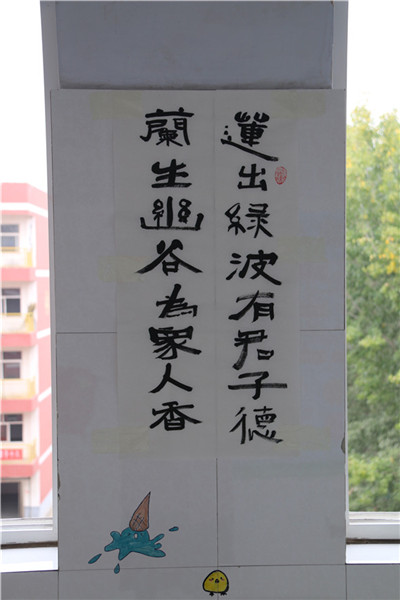 蓮出綠波有君子德
蘭生幽谷為眾人香